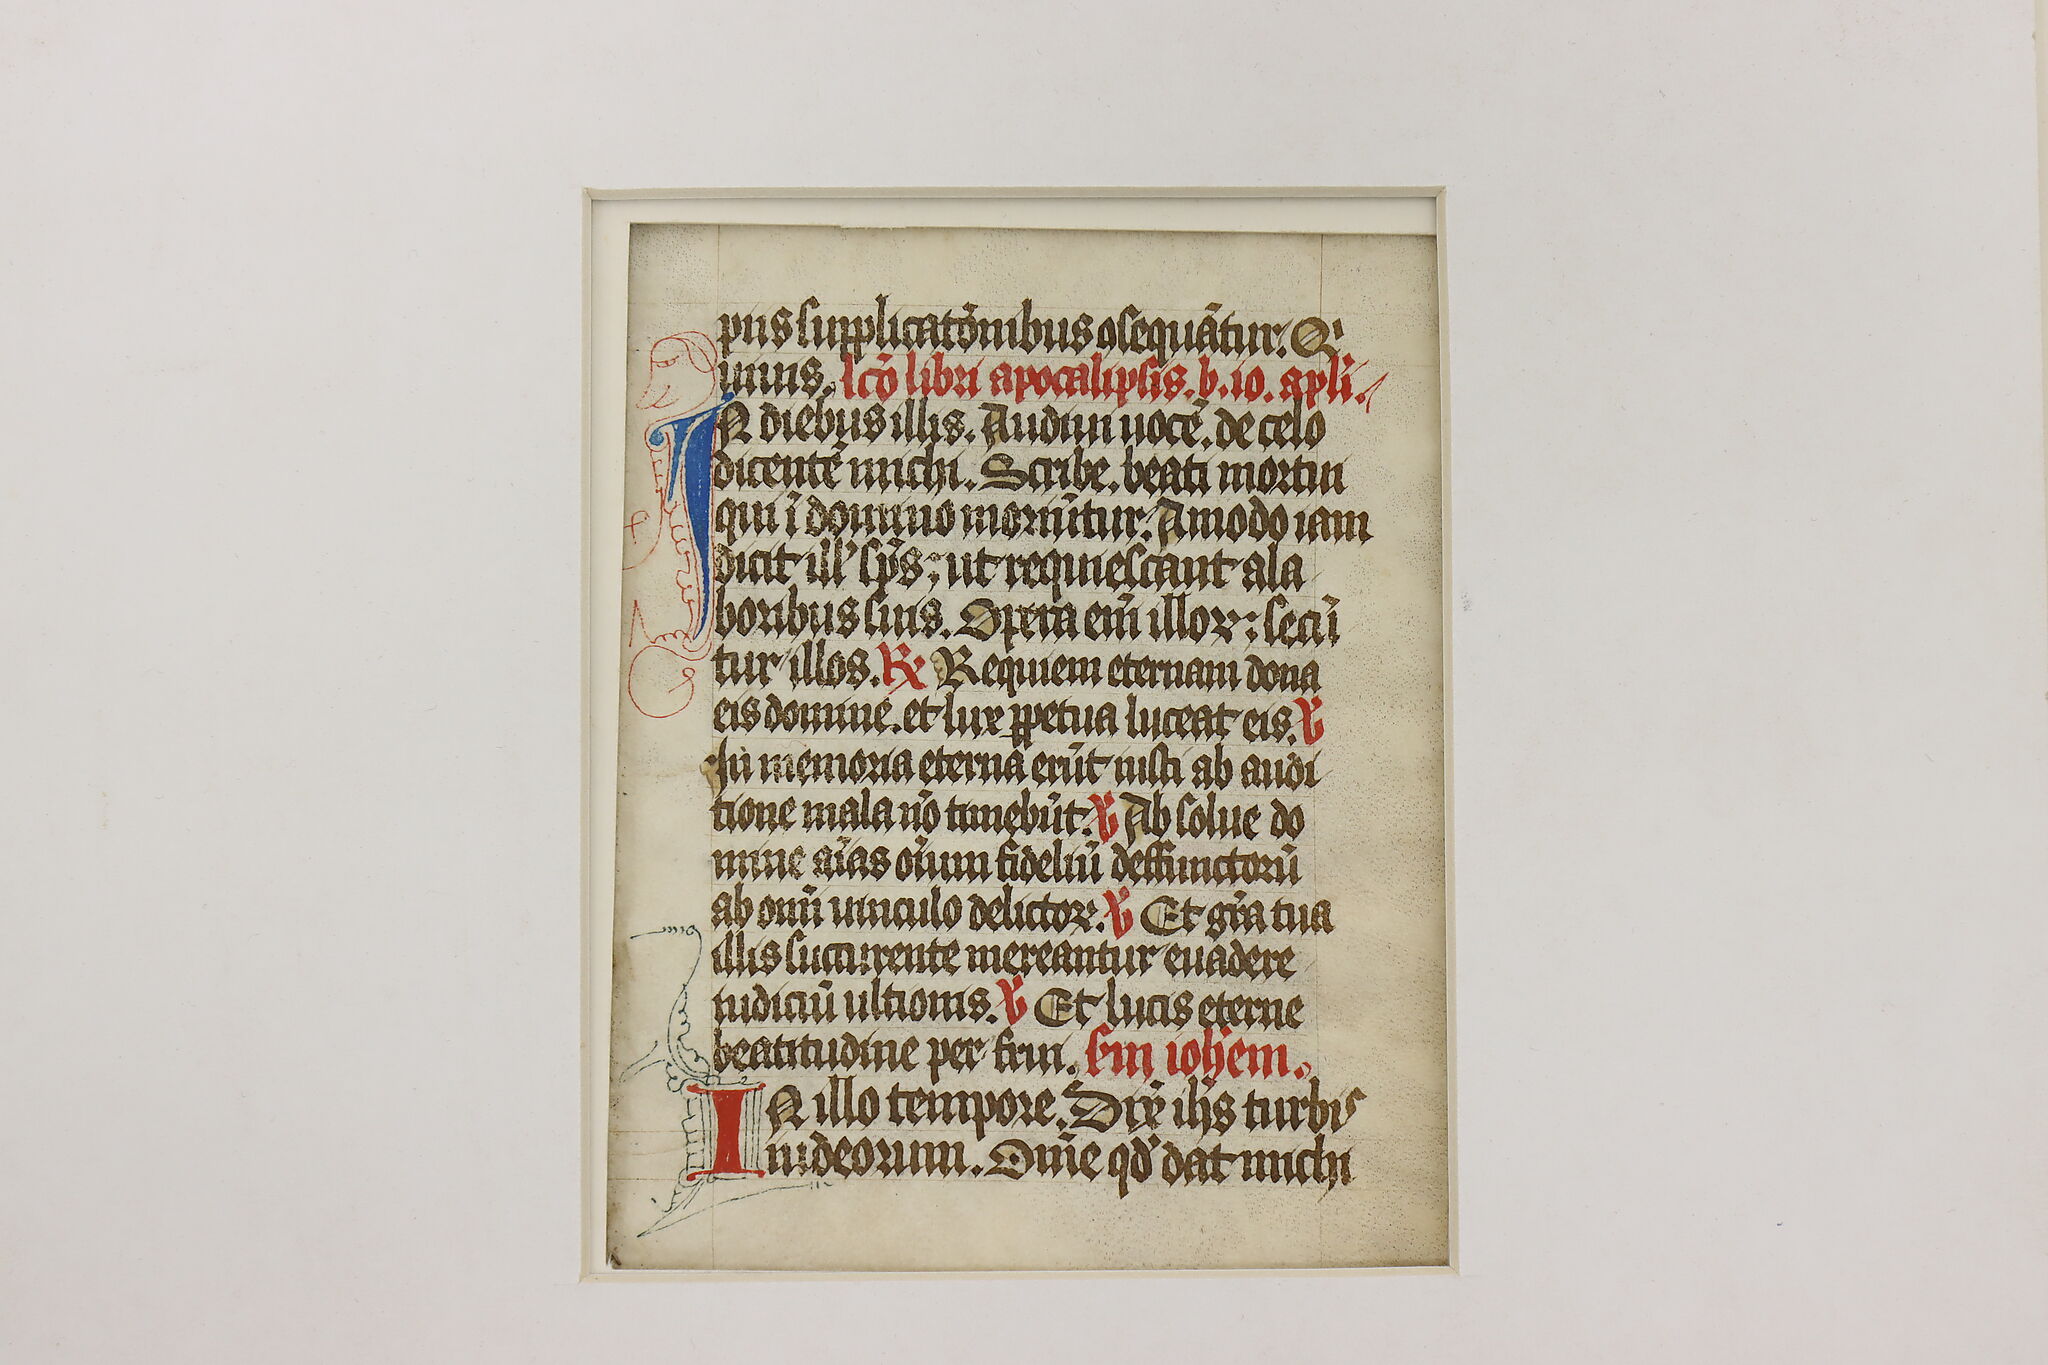 pus supplicatōnibus ꝯsequāt̄ur. Q
uiuis. lcō libri apocalipsis. b. io. apli.
IN diebus illis. Audiui uocē. de celo
dicentē michi. Scribe. beati mortui
qui ī domino moriūtur. Amodo iam
dicit ill' sp̄s; ut requiescant a la
boribus suis. Opera eni̅ illoꝝ; secū
tur illos. ℞ Requiem eternam dona
eis domine. et lux ꝑpetua luceat eis. ℣
In memoria eterna erūt iusti ab audi
tione mala nō timebūt. ℣ Absolue do
mine aīas oīum fideliū deffunctorū
ab omī uinculo delictoꝝ. ℣ Et gr̄a tua
illis succurente mereantur euadere
iudiciū ultionis. ℣ Et lucis eterne
beatitudine per frui. sm̄ ioh̄em.
IN illo tempore. Dix̄ ih̄s turbis
iudeorum. Om̄e qd' dat michi